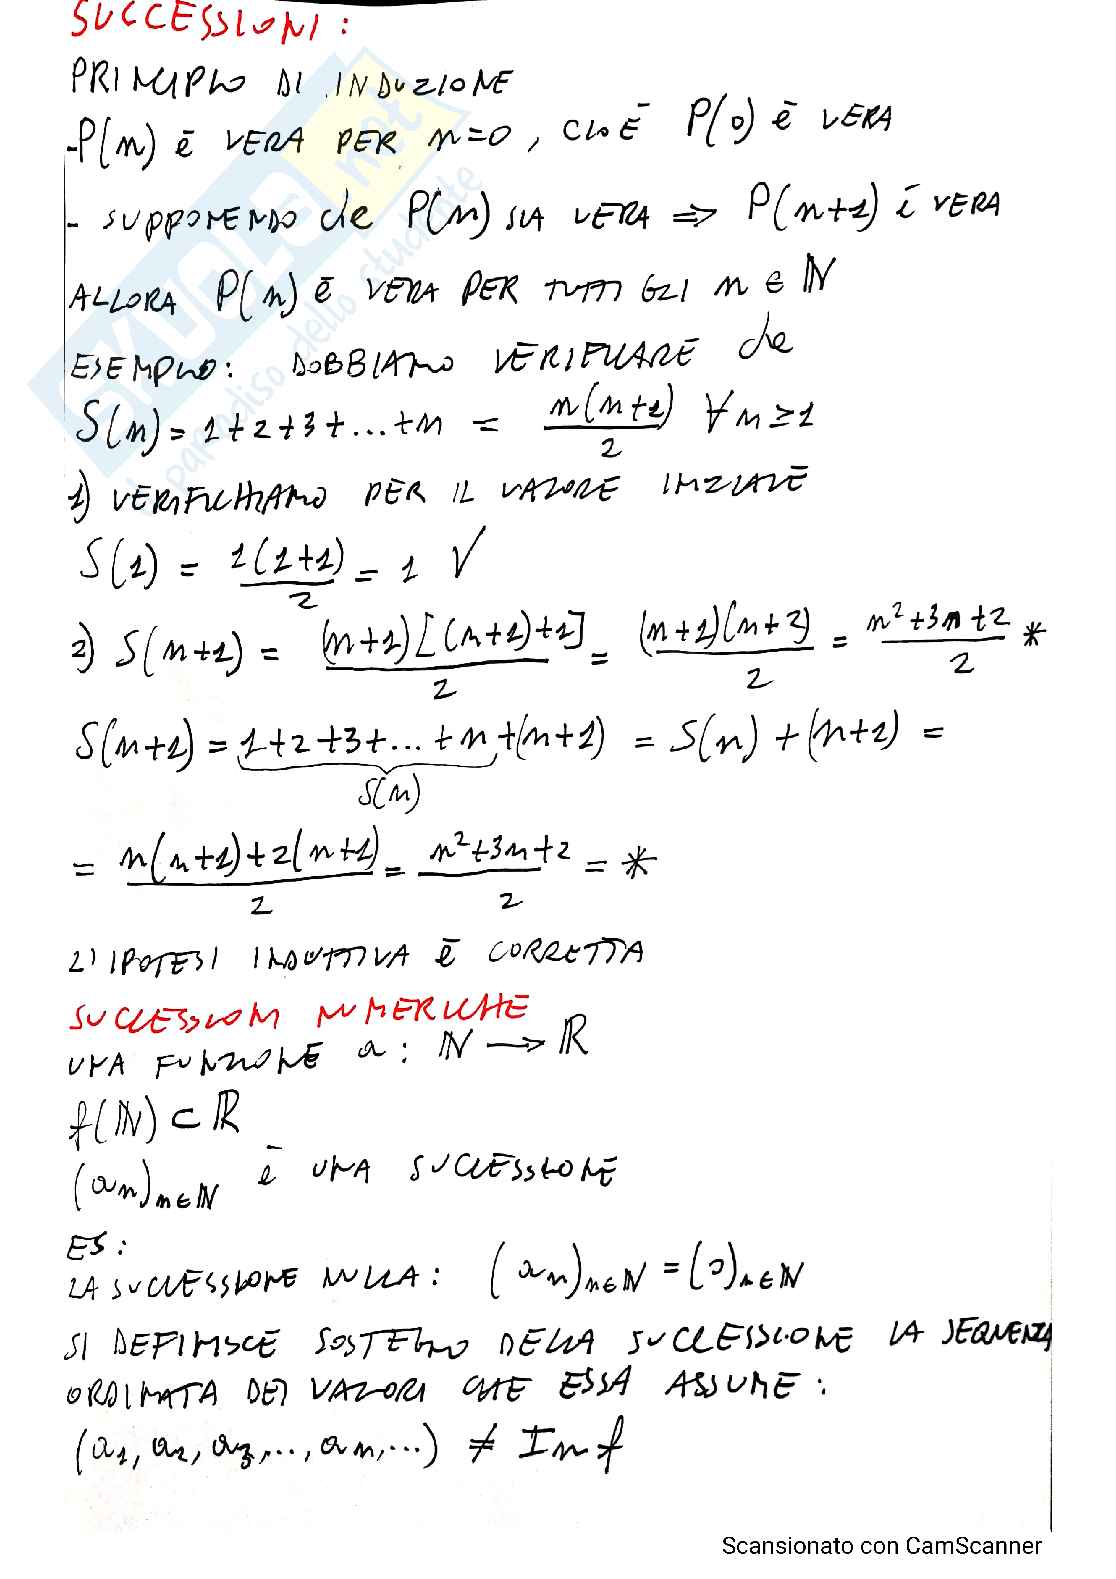 SUCCESSIONI:
PRINCIPIO DI INDUZIONE
- P(n) È VERA PER n=0, CIOÈ P(0) È VERA
- SUPPONENDO che P(n) SIA VERA ⇒ P(n+1) È VERA
ALLORA P(n) È VERA PER TUTTI GLI n ∈ ℕ
ESEMPIO: DOBBIAMO VERIFICARE che
S(n) = 1+2+3+...+n = n(n+1)/2 ∀n≥1
1) VERIFICHIAMO PER IL VALORE INIZIALE
S(1) = 1(1+1)/2 = 1 √
2) S(n+1) = (n+1)[(n+1)+1]/2 = (n+1)(n+2)/2 = n²+3n+2/2 *
S(n+1) = 1+2+3+...+n+(n+1) = S(n)+(n+1) =
S(n)
= n(n+1)+2(n+1)/2 = n²+3n+2/2 = *
L'IPOTESI INDUTTIVA È CORRETTA
SUCCESSIONI NUMERICHE
UNA FUNZIONE a: ℕ → ℝ
f(ℕ) ⊂ ℝ
(an)n∈ℕ È UNA SUCCESSIONE
ES:
LA SUCCESSIONE NULLA: (an)n∈ℕ = (0)n∈ℕ
SI DEFINISCE SOSTEGNO DELLA SUCCESSIONE LA SEQUENZA
ORDINATA DEI VALORI CHE ESSA ASSUME:
(a1, a2, a3, ..., an, ...) ≠ Im f
SKUOLA.net
il paradiso dello studente
Scansionato con CamScanner